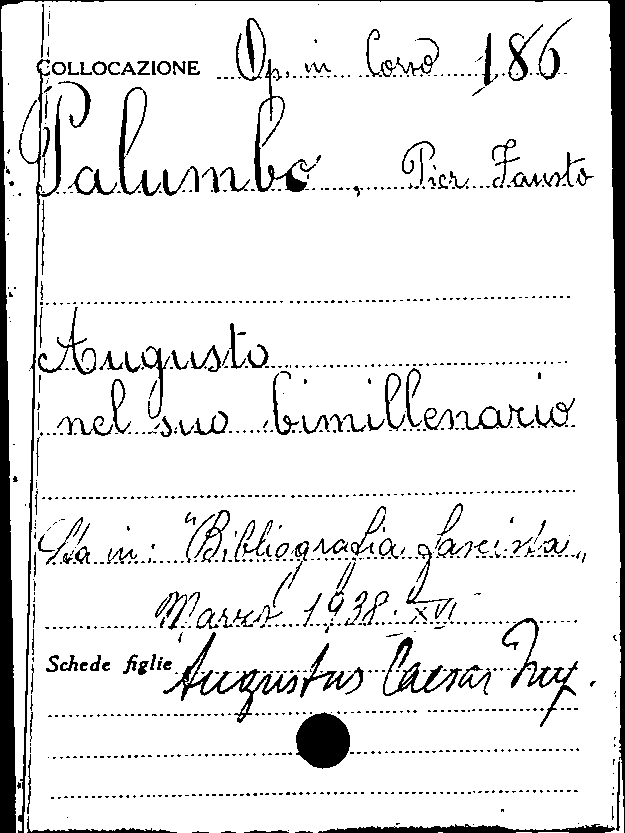 COLLOCAZIONE Op. in Corso 186
Palumbo, Pier Fausto
Augusto
nel suo bimillenario
Sta in: "Bibliografia fascista„
Marzo 1938. XVI
Schede figlie Augustus Caesar Imp.